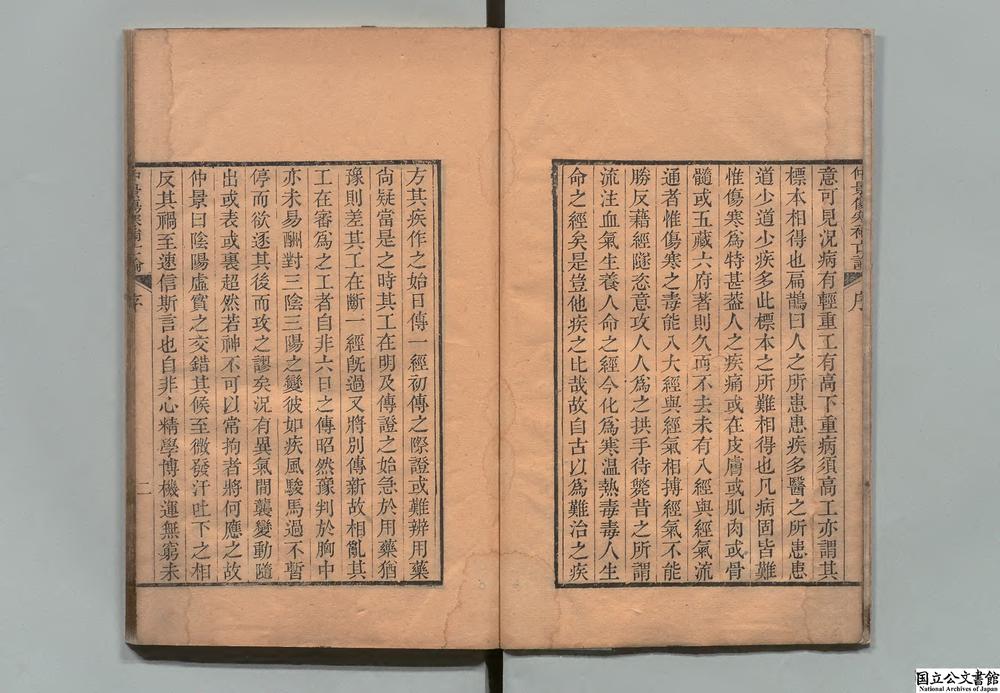 仲景傷寒補亡論 序
意可見況病有輕重工有高下重病須高工亦謂其
標本相得也扁鵲曰人之所患患疾多醫之所患患
道少道少疾多此標本之所難相得也凡病固皆難
惟傷寒為特甚葢人之疾痛或在皮膚或肌肉或骨
髓或五藏六府著則久而不去未有入經與經氣流
通者惟傷寒之毒能入大經與經氣相摶經氣不能
勝反藉經隧恣意攻人人為之拱手待斃昔之所謂
流注血氣生養人命之經今化為寒溫熱毒毒人生
命之經矣是豈他疾之比哉故自古以為難治之疾
方其疾作之始日傳一經初傳之際證或難辨用藥
尙疑當是之時其工在明及傳證之始急於用藥猶
豫則差其工在斷一經旣過又將別傳新故相亂其
工在審為之工者自非六日之傳昭然豫判於胸中
亦未易酬對三陰三陽之變彼如疾風駿馬過不暫
停而欲逐其後而攻之謬矣況有異氣間襲變動隨
出或表或裏超然若神不可以常拘者將何應之故
仲景曰陰陽虛實之交錯其候至微發汗吐下之相
反其禍至速信斯言也自非心精學博機運無窮未
仲景傷寒補亡論 序 二
国立公文書館
National Archives of Japan